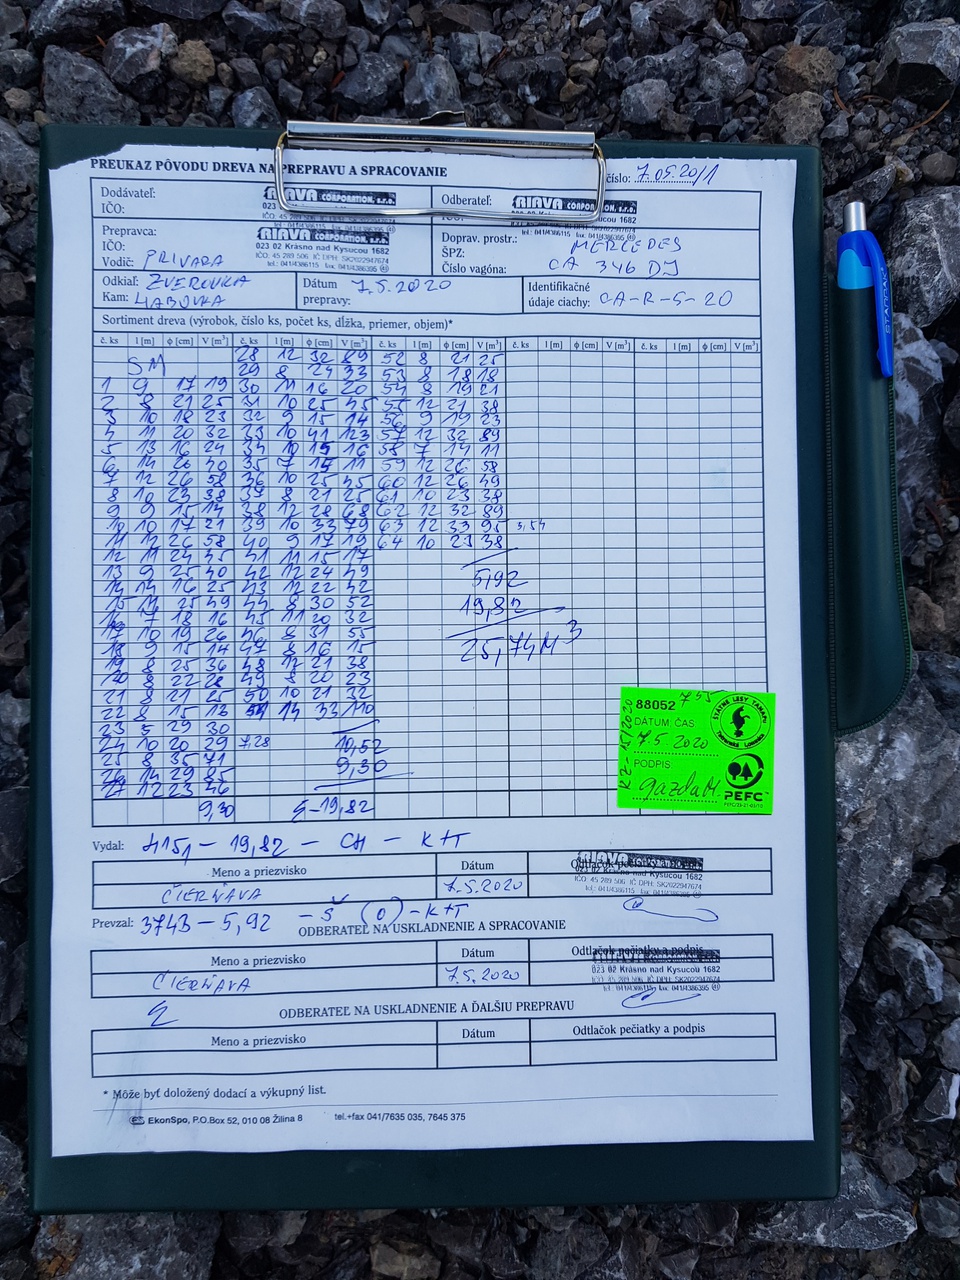 PREUKAZ PÔVODU DREVA NA PREPRAVU A SPRACOVANIE
číslo: 7.05.20/1
Dodávateľ:
IČO:
RIAVA CORPORATION, s.r.o.
Odberateľ:
RIAVA CORPORATION, s.r.o.
Prepravca:
IČO:
Vodič: PRIVARA
RIAVA CORPORATION, s.r.o.
023 02 Krásno nad Kysucou 1682
IČO: 45 289 506 IČ DPH: SK2022947674
tel.: 041/4386115 fax: 041/4386395
Doprav. prostr.: MERCEDES
ŠPZ: CA 346 DJ
Číslo vagóna:
Odkiaľ: ZVEROVKA
Kam: HABOVKA
Dátum prepravy: 7.5.2020
Identifikačné údaje ciachy: CA-R-S-20
Sortiment dreva (výrobok, číslo ks, počet ks, dĺžka, priemer, objem)*
č. ks l [m] ϕ [cm] V [m³] č. ks l [m] ϕ [cm] V [m³] č. ks l [m] ϕ [cm] V [m³] č. ks l [m] ϕ [cm] V [m³] č. ks l [m] ϕ [cm] V [m³]
SM 28 12 32 89 52 8 21 25
29 8 24 33 53 8 18 18
1 9 17 19 30 11 16 20 54 8 19 21
2 8 21 25 31 10 25 45 55 12 21 38
3 10 18 23 32 9 15 14 56 9 19 23
4 11 20 32 33 10 41 123 57 12 32 89
5 13 16 24 34 10 15 16 58 7 14 11
6 14 20 40 35 7 14 11 59 12 26 58
7 12 26 58 36 10 25 45 60 12 26 49
8 10 23 38 37 8 21 25 61 10 23 38
9 9 15 14 38 12 28 68 62 12 32 89
10 10 17 21 39 10 33 79 63 12 33 95 3,54
11 12 26 58 40 9 17 19 64 10 23 38
12 11 24 45 41 11 15 17
13 9 25 40 42 12 24 49 5,92
14 14 16 25 43 12 22 42
15 14 25 49 44 8 30 52 19,82
16 7 18 16 45 11 20 32
17 10 19 26 46 8 31 55 25,74M³
18 9 15 14 47 8 16 15
19 8 25 36 48 12 21 38
20 8 22 28 49 8 20 23
21 8 21 25 50 10 21 32
22 8 15 13 51 14 33 110
23 5 29 30
24 10 20 29 7,28 10,52
25 8 35 71 9,30
26 14 29 85
27 12 23 46
9,30 19,82
88052
DÁTUM, ČAS.
7.5.2020 7 55
PODPIS
gazdaM.
ŠTÁTNE LESY TANAPU
PEFC
Vydal: 4151 - 19,82 - CH - K+T
Meno a priezvisko Dátum Odtlačok pečiatky a podpis
ČIERŇAVA 7.5.2020
RIAVA
023 02 Krásno nad Kysucou 1682
IČO: 45 289 506 IČ DPH: SK2022947674
Prevzal: 3743 - 5,92 - Š (O) - K+T
ODBERATEĽ NA USKLADNENIE A SPRACOVANIE
Meno a priezvisko Dátum Odtlačok pečiatky a podpis
ČIERŇAVA 7.5.2020
023 02 Krásno nad Kysucou 1682
IČO: 45 289 506 IČ DPH: SK2022947674
ODBERATEĽ NA USKLADNENIE A ĎALŠIU PREPRAVU
Meno a priezvisko Dátum Odtlačok pečiatky a podpis
* Môže byť doložený dodací a výkupný list.
EkonSpo, P.O.Box 52, 010 08 Žilina 8 tel.+fax 041/7635 035, 7645 375
STANDARD